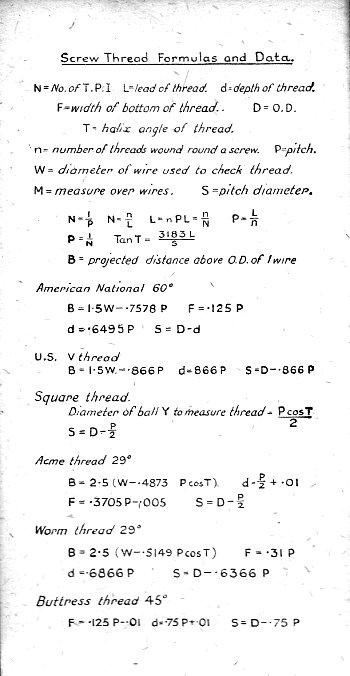 Screw Thread Formulas and Data.
N=No. of T.P.I L=lead of thread. d=depth of thread.
F=width of bottom of thread. . D=O.D.
T= halix angle of thread.
n= number of threads wound round a screw. P=pitch.
W = diameter of wire used to check thread.
M= measure over wires. S=pitch diameter.
N=1/P N=n/L L=nPL=n/N P=L/n
P=1/N TanT= 3183L/S
B= projected distance above O.D. of 1 wire
American National 60°
B=1·5W-·7578 P F=·125 P
d=·6495P S=D-d
U.S. V thread
B=1·5W.-·866P d=866P S=D-·866 P
Square thread.
Diameter of ball Y to measure thread= PcosT/2
S=D-P/2
Acme thread 29°
B=2·5(W-·4873 PcosT). d=P/2+·01
F=·3705P-·005 S=D-P/2
Worm thread 29°
B=2·5 (W-·5149 PcosT) F=·31 P
d=·6866P S=D-·6366 P
Buttress thread 45°
F=·125 P-·01 d=·75P+·01 S=D-·75 P